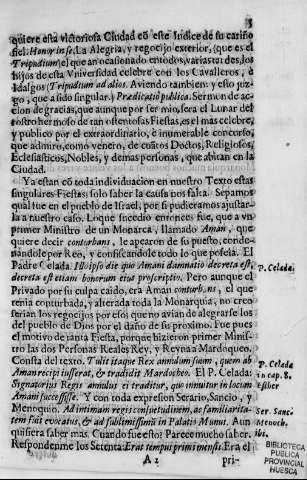 3
quiere esta victoriosa Ciudad en este Indice de su cariño
fiel. Honor in se. La Alegria, y regocijo exterior, (que es el
Tripudium) el que an ocasionado en todos, varias tardes, los
hijos de esta Vniversidad celebre con los Cavalleros, è
Idalgos (Tripudium ad alios. Aviendo tambien: y esto juz-
go, que a sido singular. ) Predicatio publica. Sermon de ac-
cion de gracias, que aunque por ser mio, sera el Lunar del
rostro hermoso de tan ostentosas Fiestas, es el mas celebre,
y publico por el extraordinario, è inumerable concurso,
que admiro, como venero, de cuãtos Doctos, Religiosos,
Eclesiasticos, Nobles, y demas personas, que abitan en la
Ciudad.
Ya estan cõ toda individuacion en nuestro Texto estas
singulares Fiestas: solo saber la causa nos falta. Sepamos
qual fue en el pueblo de Israel, por si pudieramos ajustar-
la a nuestro caso. Lo que sucedio entonces fue, que a vn
primer Ministro de un Monarca, llamado Aman, que
quiere decir conturbans, le apearon de su puesto, conde-
nandole por Reo, y confiscandole todo lo que poseia. El
Padre Celada. Illo ipso die quo Amani damnatio decreta est,
decreta est etiam bonorum eius proscriptio. Pero aunque el
P. Celada.
Privado por su culpa caido, era Aman conturbans, el que
tenia conturbada, y alterada toda la Monarquia, no creo
serian los regocijos por eso: que no avian de alegrarse los
del pueblo de Dios por el daño de su proximo. Fue pues
el motivo de tanta Fiesta, porque hizieron primer Minis-
tro las dos Personas Reales Rey, y Reyna a Mardoqueo.
Consta del texto. Tulit itaque Rex annulum suum, quem ab
Aman recipi iusserat, & tradidit Mardocheo. El P. Celada:
P. Celada
in cap. 8.
Esther
Signatorius Regis annulus ei traditur, quo innuitur in locum
Amani successisse. Y con toda expresion Serario, Sancio, y
Menoquio. Ad intimam regis consuetudinem, ac familiarita-
Ser. Sanc.
tem fuit evocatus, & ad sublimissimũ in Palatio Munus. Aun
Menoch.
quisiera saber mas. Cuando fue esto? Parece mucho saber.
ibi.
Respondenme los Setenta: Erat tempus primi mensis. Era el
A 2
pri-
BIBLIOTECA
PUBLICA
PROVINCIAL
HUESCA